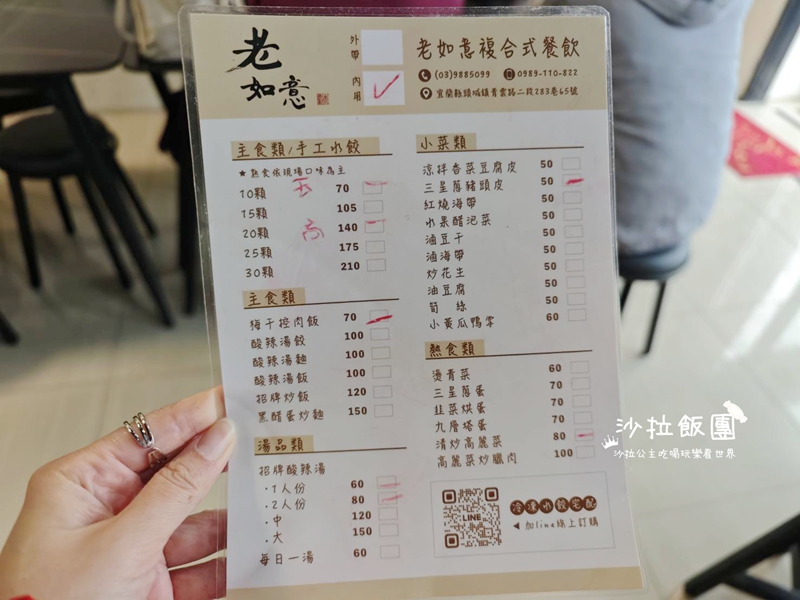 老
如意
外帶
內用
老如意複合式餐飲
(03)9885099 0989-110-822
宜蘭縣頭城鎮青雲路二段283巷65號
主食類/手工水餃
★熟食依現場口味為主
10顆 玉 70
15顆 105
20顆 高 140
25顆 175
30顆 210
主食類
梅干控肉飯 70
酸辣湯餃 100
酸辣湯麵 100
酸辣湯飯 100
招牌炒飯 120
黑醋蛋炒麵 150
湯品類
招牌酸辣湯
·1人份 60
·2人份 80
·中 120
·大 150
每日一湯 60
小菜類
涼拌香菜豆腐皮 50
三星蔥豬頭皮 50
紅燒海帶 50
水果醋泡菜 50
滷豆干 50
滷海帶 50
炒花生 50
油豆腐 50
筍絲 50
小黃瓜鴨掌 60
熱食類
燙青菜 60
三星蔥蛋 70
韭菜烘蛋 70
九層塔蛋 70
清炒高麗菜 80
高麗菜炒臘肉 100
LINE
冷凍水餃宅配
◀加line線上訂購
沙拉飯團
沙拉公主吃喝玩樂看世界